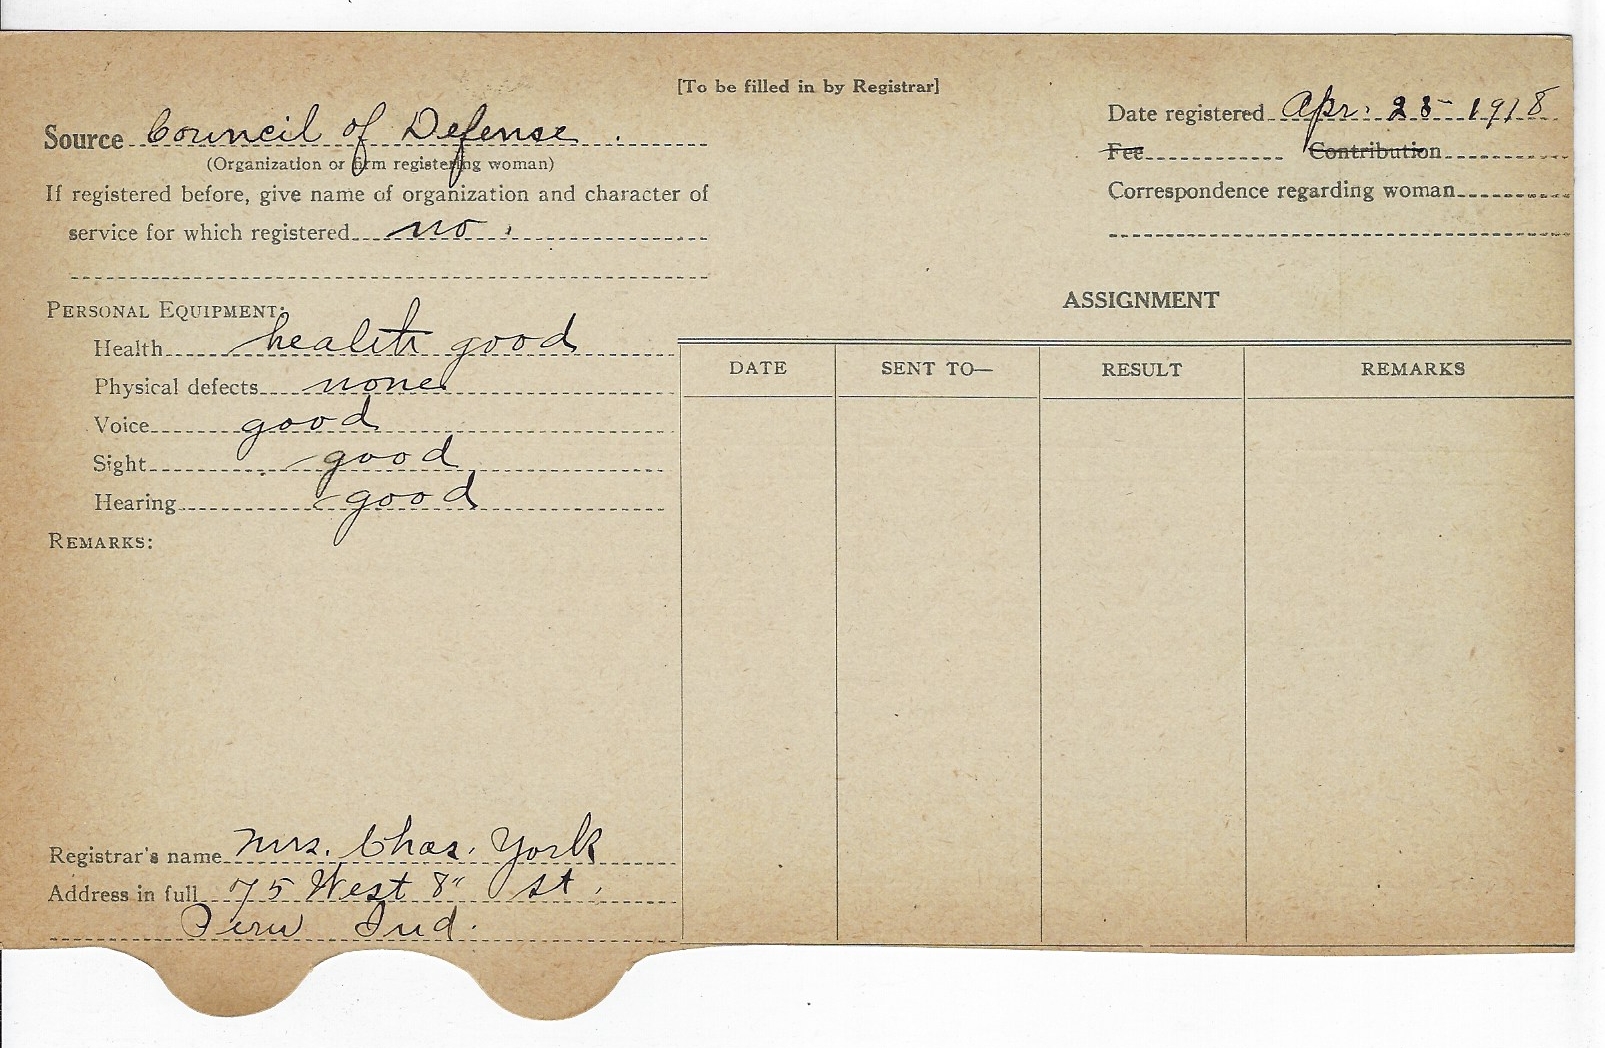 [To be filled in by Registrar]
Source Council of Defense.
(Organization or firm registering woman)
If registered before, give name of organization and character of
service for which registered no.
PERSONAL EQUIPMENT:
Health health good
Physical defects none
Voice good
Sight good
Hearing good
REMARKS:
Registrar's name Mrs. Chas. York
Address in full 75 West 8" St.
Peru Ind.
Date registered Apr. 25 1918
Fee Contribution
Correspondence regarding woman
ASSIGNMENT
DATE SENT TO— RESULT REMARKS